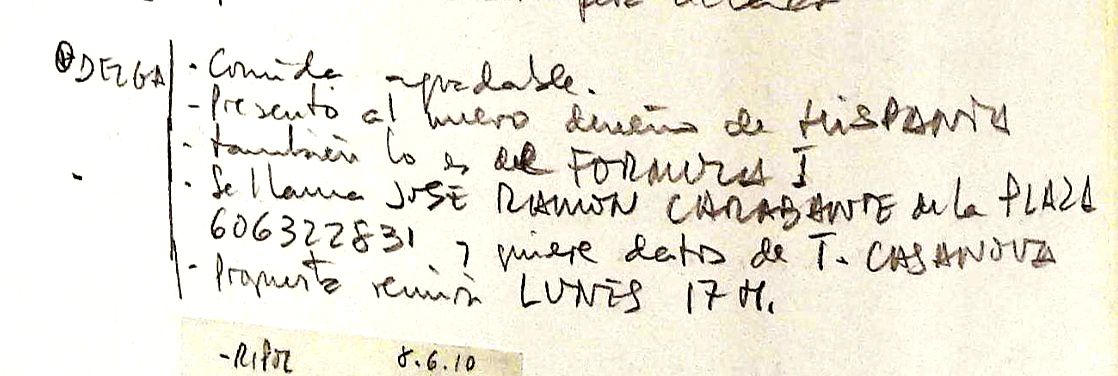 para
DELGA - Comida agradable.
- Presento al nuevo dueño de HISPANIA
- también lo es del FORMULA I
- Se llama JOSE RAMON CARABANTE de la PLAZA
606322831 y quiere datos de T. CASANOVA
- Propuesta reunión LUNES 17 H.
-RIPOL 8.6.10